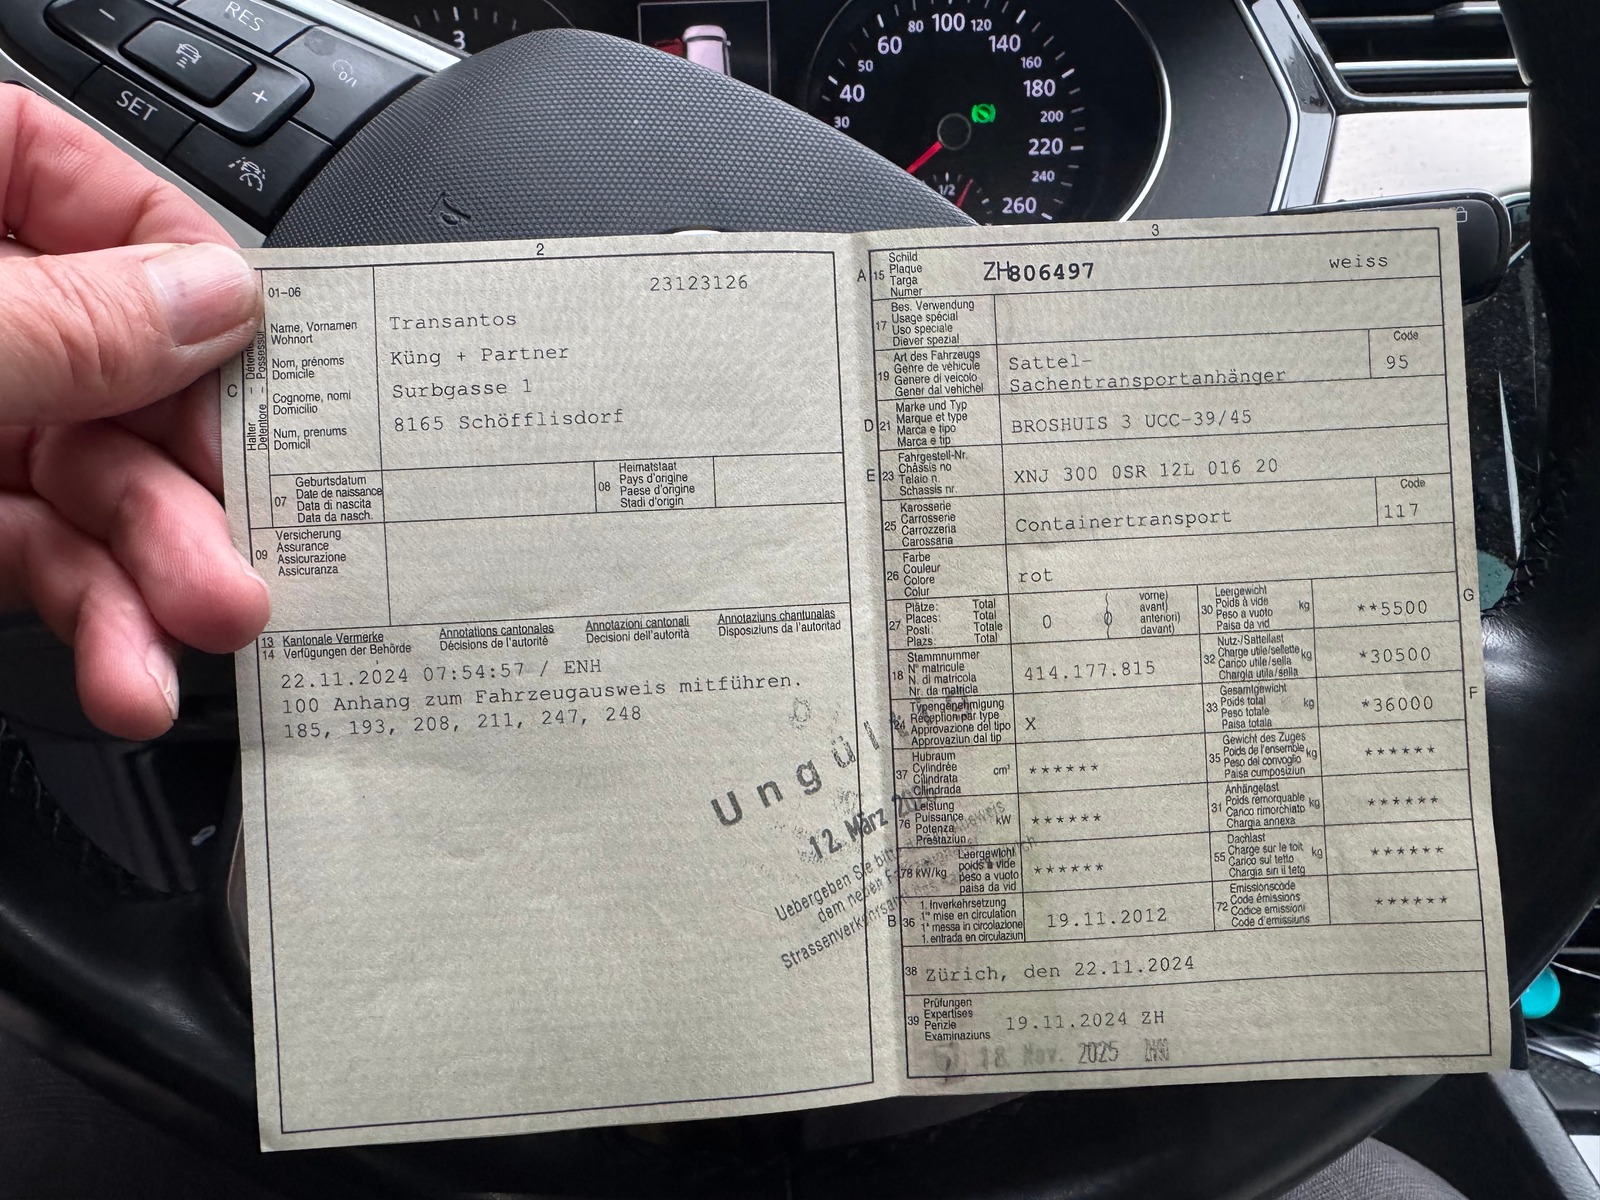 RES
SET
3
30
40
50
60
80
100
120
140
160
180
200
220
240
260
1/2
2
01-06
23123126
Name, Vornamen
Wohnort
Nom, prénoms
Domicile
Cognome, nomi
Domicilio
Num, prenums
Domicil
C
Halter – Détenteur
Detentore – Possessur
Transantos
Küng + Partner
Surbgasse 1
8165 Schöfflisdorf
07
Geburtsdatum
Date de naissance
Data di nascita
Data da nasch.
08
Heimatstaat
Pays d'origine
Paese d'origine
Stadi d'origin
09
Versicherung
Assurance
Assicurazione
Assicuranza
13 Kantonale Vermerke Annotations cantonales Annotazioni cantonali Annotaziuns chantunalas
14 Verfügungen der Behörde Décisions de l'autorité Decisioni dell'autorità Disposiziuns da l'autoritad
22.11.2024 07:54:57 / ENH
100 Anhang zum Fahrzeugausweis mitführen.
185, 193, 208, 211, 247, 248
12. März
Uebergeben Sie
dem neuen
3
A 15
Schild
Plaque
Targa
Numer
ZH806497 weiss
17
Bes. Verwendung
Usage spécial
Uso speciale
Diever spezial
19
Art des Fahrzeugs
Genre de véhicule
Genere di veicolo
Gener dal vehichel
Sattel-
Sachentransportanhänger
Code
95
D 21
Marke und Typ
Marque et type
Marca e tipo
Marca e tip
BROSHUIS 3 UCC-39/45
E 23
Fahrgestell-Nr.
Châssis no
Telaio n.
Schassis nr.
XNJ 300 0SR 12L 016 20
25
Karosserie
Carrosserie
Carrozzeria
Carossaria
Containertransport
Code
117
26
Farbe
Couleur
Colore
Colur
rot
27
Plätze: Total
Places: Total
Posti: Totale
Plazs: Total
0
vorne)
avant)
anteriori)
davant)
30
Leergewicht
Poids à vide
Peso a vuoto
Paisa da vid
kg
**5500
G
18
Stammnummer
N° matricule
N. di matricola
Nr. da matricla
414.177.815
32
Nutz-/Sattellast
Charge utile/sellette
Carico utile/sella
Chargia utila/sella
kg
*30500
24
Typengenehmigung
Réception par type
Approvazione del tipo
Approvaziun dal tip
X
33
Gesamtgewicht
Poids total
Peso totale
Paisa totala
kg
*36000
F
37
Hubraum
Cylindrée
Cilindrata
Cilindrada
cm³
******
35
Gewicht des Zuges
Poids de l'ensemble
Peso del convoglio
Paisa cumposiziun
kg
******
76
Leistung
Puissance
Potenza
Prestaziun
kW
******
31
Anhängelast
Poids remorquable
Carico rimorchiato
Chargia annexa
kg
******
78 kW/kg
Leergewicht
poids à vide
peso a vuoto
paisa da vid
******
55
Dachlast
Charge sur le toit
Carico sul tetto
Chargia sin il tetg
kg
******
B 36
1. Inverkehrsetzung
1re mise en circulation
1a messa in circolazione
1. entrada en circulaziun
19.11.2012
72
Emissionscode
Code émissions
Codice emissioni
Code d'emissiuns
******
38 Zürich, den 22.11.2024
39
Prüfungen
Expertises
Perizie
Examinaziuns
19.11.2024 ZH
18 Nov. 2025